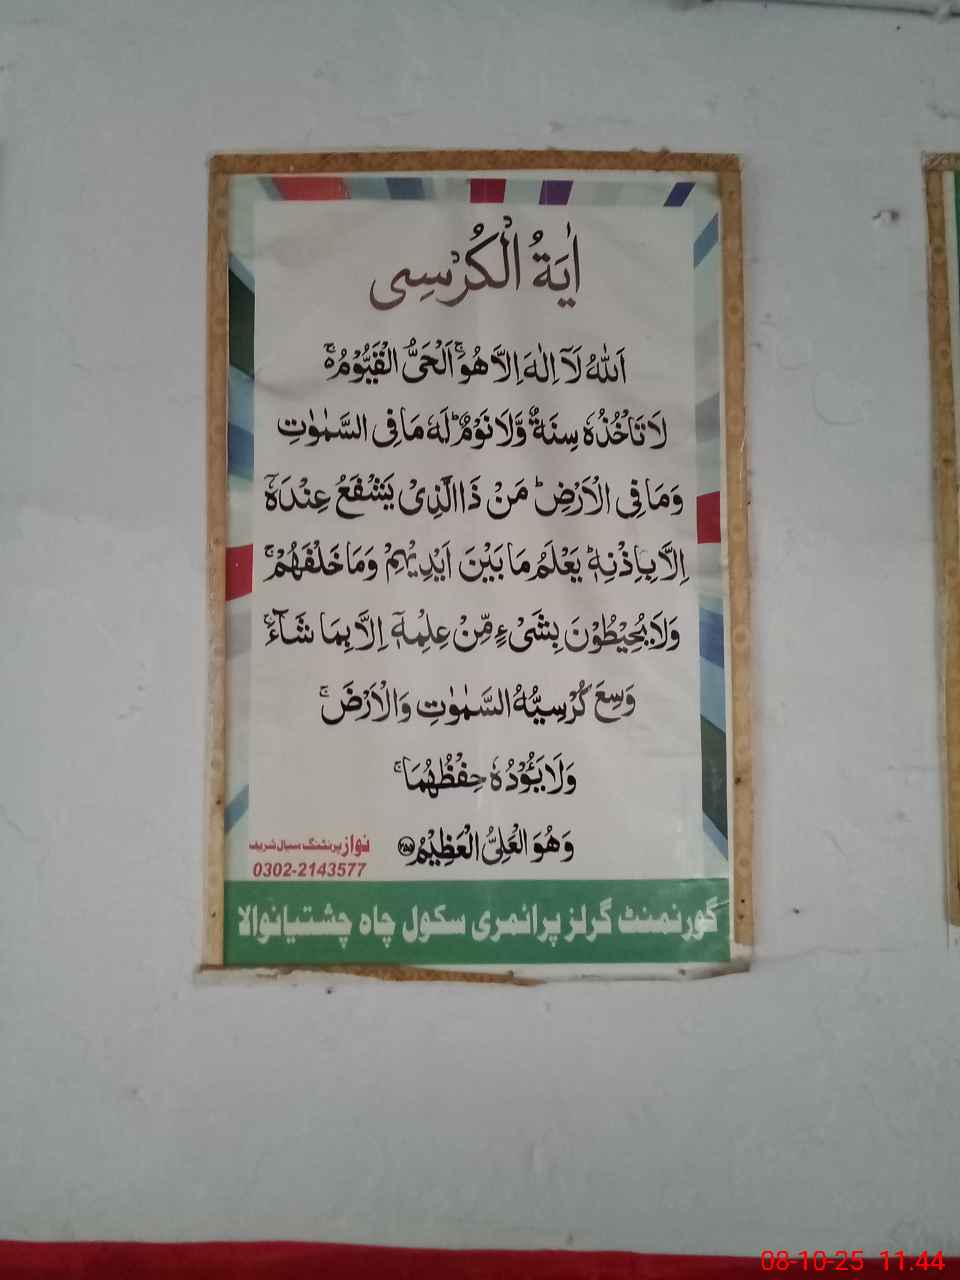 اٰيَةُ الْكُرْسِی
اَللّٰهُ لَاۤ اِلٰهَ اِلَّا هُوَ ۚ اَلْحَیُّ الْقَیُّوْمُ ۚ۬
لَا تَاْخُذُهٗ سِنَةٌ وَّلَا نَوْمٌ ؕ لَهٗ مَا فِی السَّمٰوٰتِ
وَمَا فِی الْاَرْضِ ؕ مَنْ ذَا الَّذِیْ یَشْفَعُ عِنْدَهٗۤ
اِلَّا بِاِذْنِهٖ ؕ یَعْلَمُ مَا بَیْنَ اَیْدِیْهِمْ وَمَا خَلْفَهُمْ ۚ
وَلَا یُحِیْطُوْنَ بِشَیْءٍ مِّنْ عِلْمِهٖۤ اِلَّا بِمَا شَآءَ ۚ
وَسِعَ كُرْسِیُّهُ السَّمٰوٰتِ وَالْاَرْضَ ۚ
وَلَا یَـُٔوْدُهٗ حِفْظُهُمَا ۚ
وَهُوَ الْعَلِیُّ الْعَظِیْمُ ﴿۲۵۵﴾
نواز پرنٹنگ سیال شریف
0302-2143577
گورنمنٹ گرلز پرائمری سکول چاہ چشتیانوالا
08-10-25 11:44